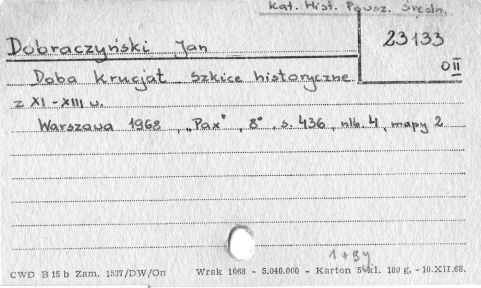 Kat. Hist. Powsz. Średn.
Dobraczyński Jan
23133
OII
Doba krucjat szkice historyczne
z XI-XIII w.
Warszawa 1968, "Pax", 8°, s. 436, nlb. 4, mapy 2
1 + By
CWD B 15 b Zam. 1537/DW/On Wrak 1068 - 5.040.000 - Karton 5 kl. 180 g. - 10.XII.68.